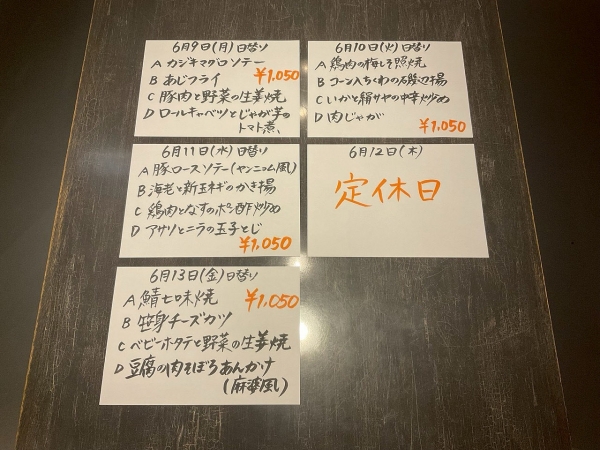 6月9日(月)日替り
A カジキマグロソテー
B あじフライ
¥1,050
C 豚肉と野菜の生姜焼
D ロールキャベツとじゃが芋の
トマト煮、
6月10日(火)日替り
A 鶏肉の梅しそ照焼
B コーン入ちくわの磯辺揚
C いかと絹サヤの中華炒め
D 肉じゃが
¥1,050
6月11日(水)日替り
A 豚ロースソテー(ヤンニョム風)
B 海老と新玉ネギのかき揚
C 鶏肉となすのポン酢炒め
D アサリとニラの玉子とじ
¥1,050
6月12日(木)
定休日
6月13日(金)日替り
A 鯖七味焼
¥1,050
B 笹身チーズカツ
C ベビーホタテと野菜の生姜焼
D 豆腐の肉そぼろあんかけ
(麻婆風)